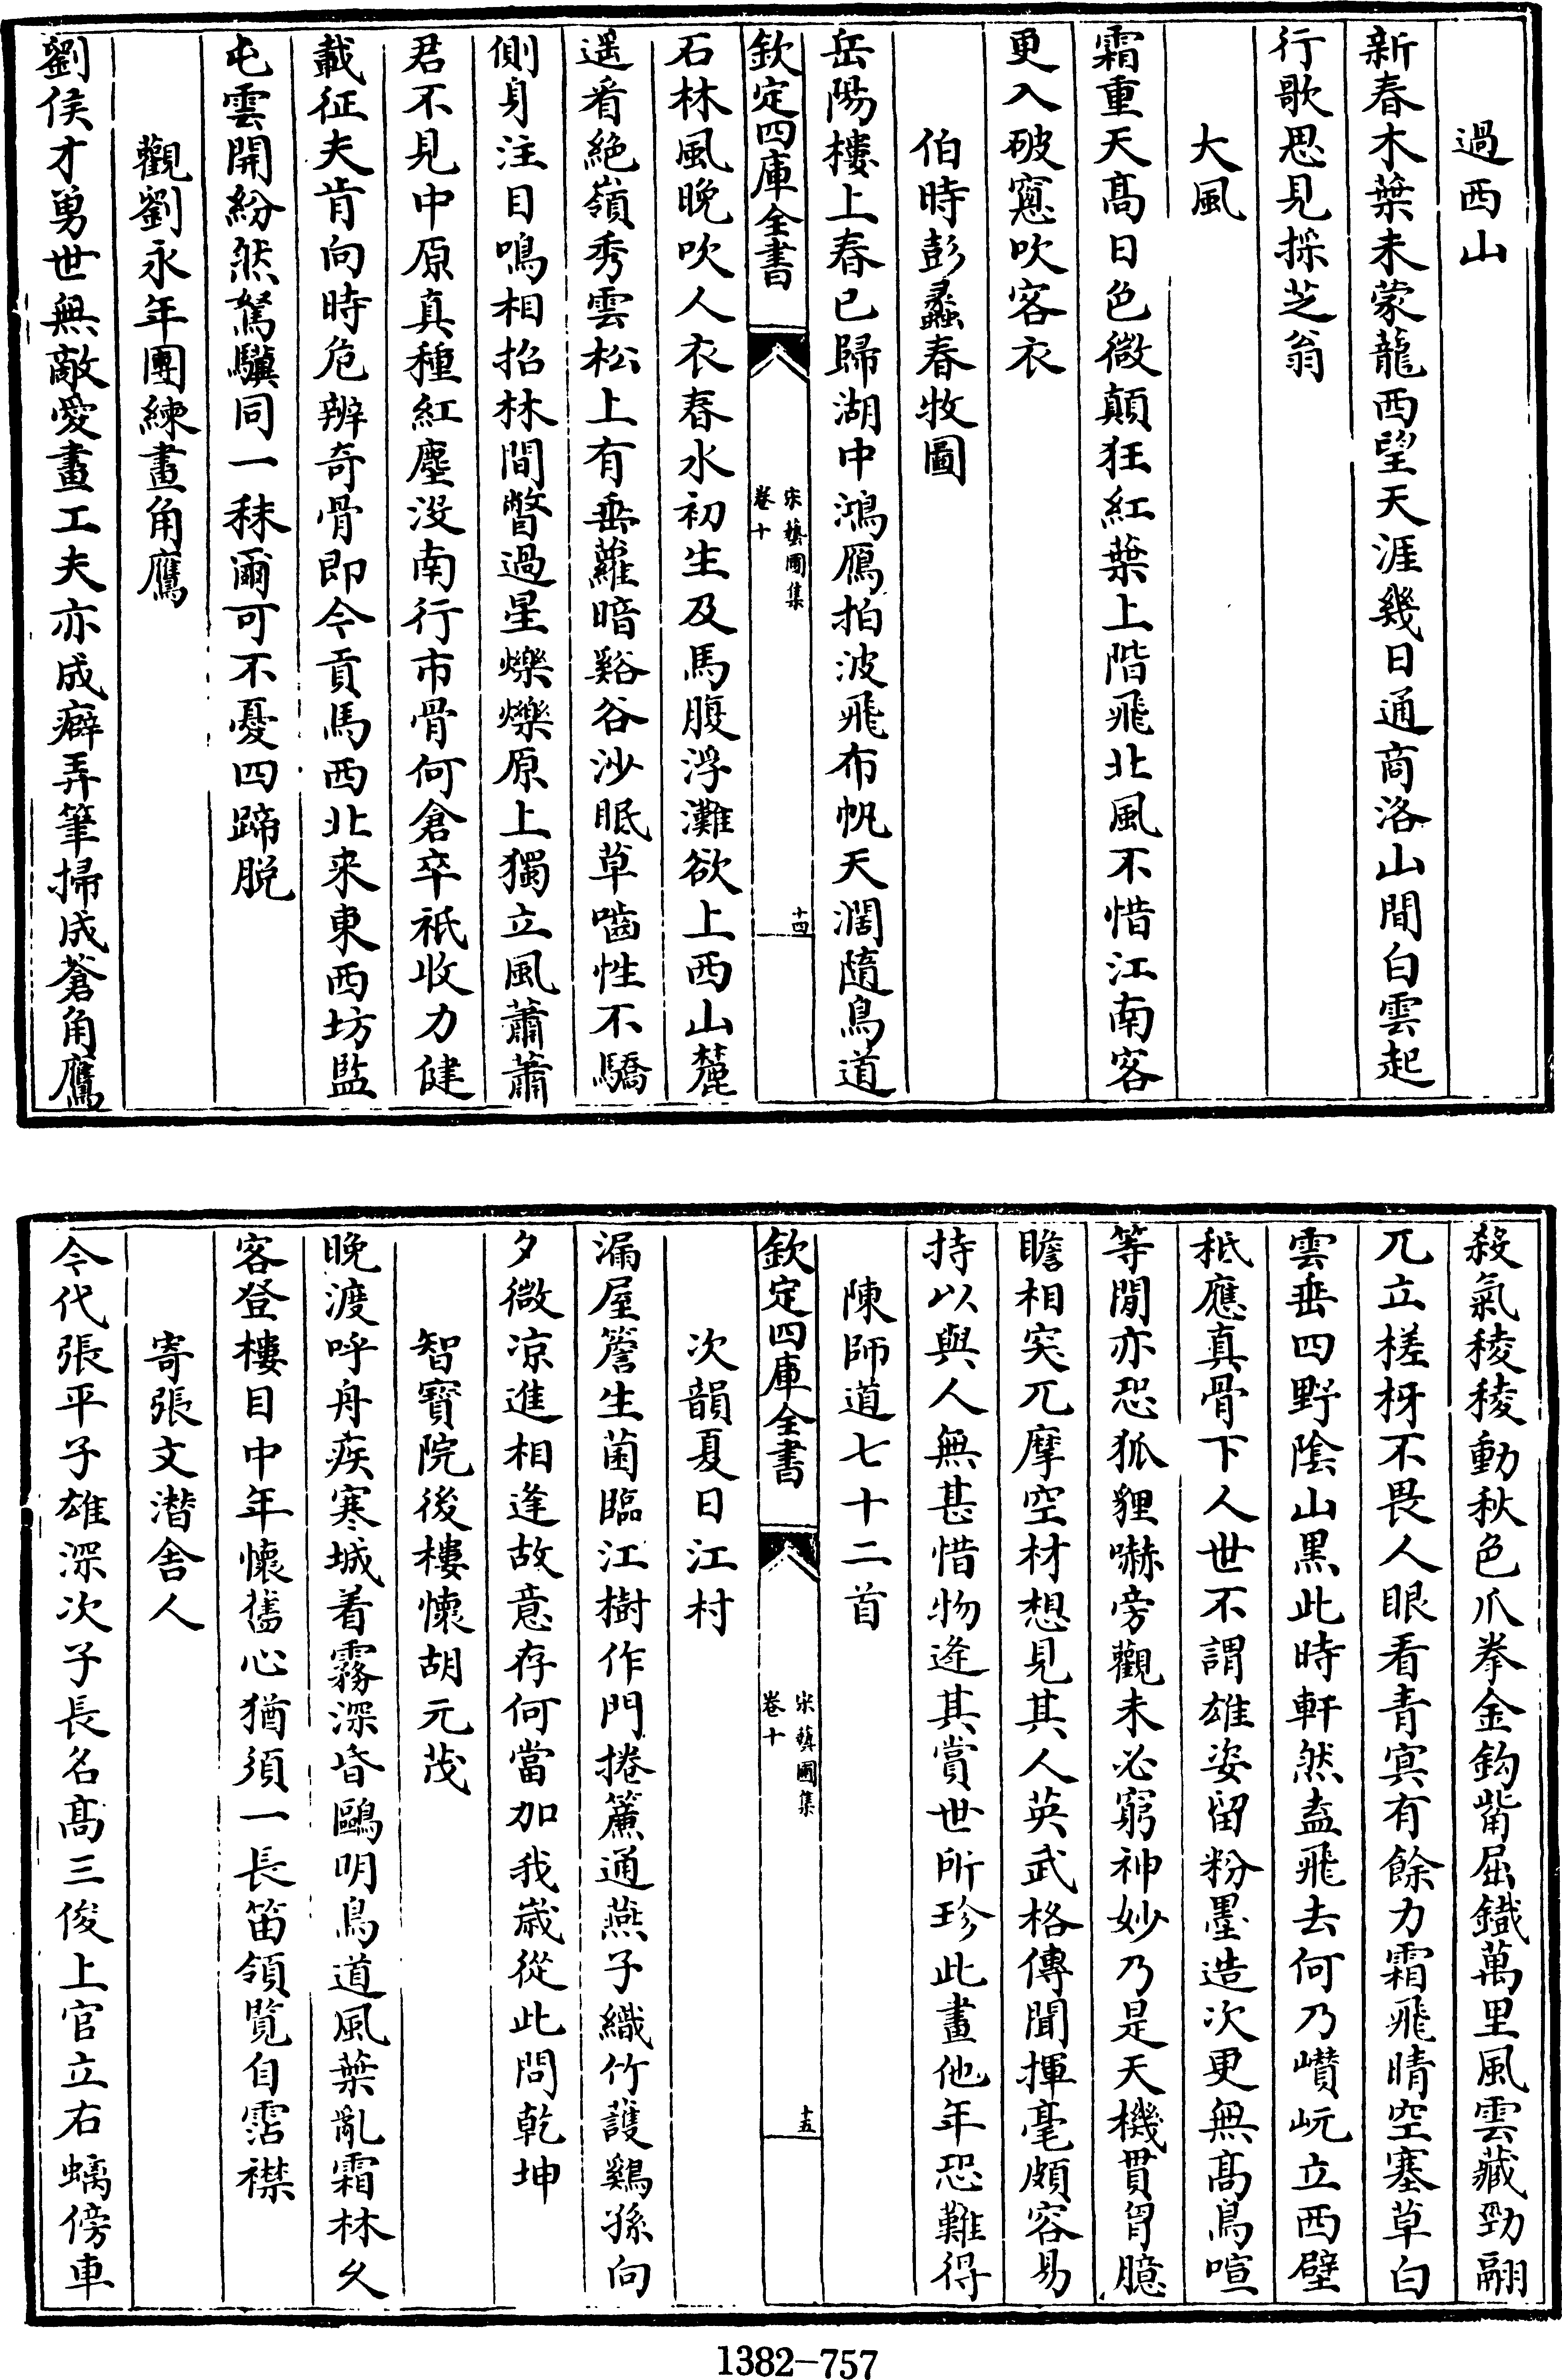 過西山
新春木葉未蒙蘢西望天涯幾日通商洛山間白雲起
行歌思見採芝翁
大風
霜重天髙日色微顛狂紅葉上階飛北風不惜江南客
更入破窻吹客衣
伯時彭蠡春牧圖
岳陽樓上春已歸湖中鴻鴈拍波飛布帆天濶隨鳥道
欽定四庫全書
宋藝圃集
卷十
十四
石林風晚吹人衣春水初生及馬腹浮灘欲上西山麓
遥看絶嶺秀雲松上有垂蘿暗谿谷沙眠草嚙性不驕
側身注目鳴相招林間瞥過星爍爍原上獨立風蕭蕭
君不見中原真種紅塵没南行市骨何倉卒祇收力健
載征夫肯向時危辨奇骨即今貢馬西北来東西坊監
屯雲開紛然駑驥同一秣爾可不憂四蹄脱
觀劉永年團練畫角鷹
劉侯才勇世無敵愛畫工夫亦成癖弄筆掃成蒼角鷹
殺氣稜稜動秋色爪拳金鈎觜屈鐡萬里風雲藏勁翮
兀立槎枒不畏人眼看青㝠有餘力霜飛晴空塞草白
雲垂四野陰山黒此時軒然盍飛去何乃巑岏立西壁
秪應真骨下人世不謂雄姿留粉墨造次更無髙鳥喧
等閒亦恐狐狸嚇旁觀未必窮神妙乃是天機貫胷臆
瞻相突兀摩空材想見其人英武格傳聞揮毫頗容易
持以與人無甚惜物逢其賞世所珍此畫他年恐難得
陳師道七十二首
欽定四庫全書
宋藝圃集
卷十
十五
次韻夏日江村
漏屋簷生菌臨江樹作門捲簾通燕子織竹護鷄孫向
夕微凉進相逢故意存何當加我嵗從此問乾坤
智寳院後樓懷胡元茂
晚渡呼舟疾寒城看霧深昏鷗明鳥道風葉亂霜林久
客登樓目中年懷舊心猶須一長笛領覽自霑襟
寄張文潛舍人
今代張平子雄深次子長名髙三俊上官立右螭傍車
1382—757